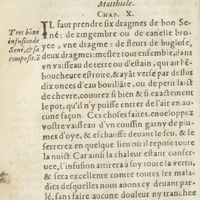 Matthiole.
CHAP. X.
Tres bōne
infusion de
Sené, & sa
composit.ō
IL faut prendre six dragmes de bon Se-
né: de zingembre ou de canelle broy-
yee, vne dragme: de fleurs de buglose,
deux dragmes: meslez tout ensemble, dās
vn vaisseau de terre ou d'estain, qui ait l'ē-
boucheure estroite, & ayāt versé par dessus
dix onces d'eau bouillāte, ou de petit laict
de cheure, couurirez si bien & si exactement
le pot, qu'il n'y puisse entrer de l'air en aucu-
ne façon. Ces choses estans ainsi faites, en-
ueloppez vostre vaisseau d'vn coussin garny de plu-
mes d'oye, & l'eschauffé deuant le feu, & le
serrerez en quelque lieu où il repose toute
la nuict. Car ainsi la chaleur estant conser-
uee, l'infusion attirera à soy toute la vertu,
& sera excellente contre toutes les mala-
dies desquelles nous auons cy deuant par-
lé, sans faire aucune douleur ny tranchee